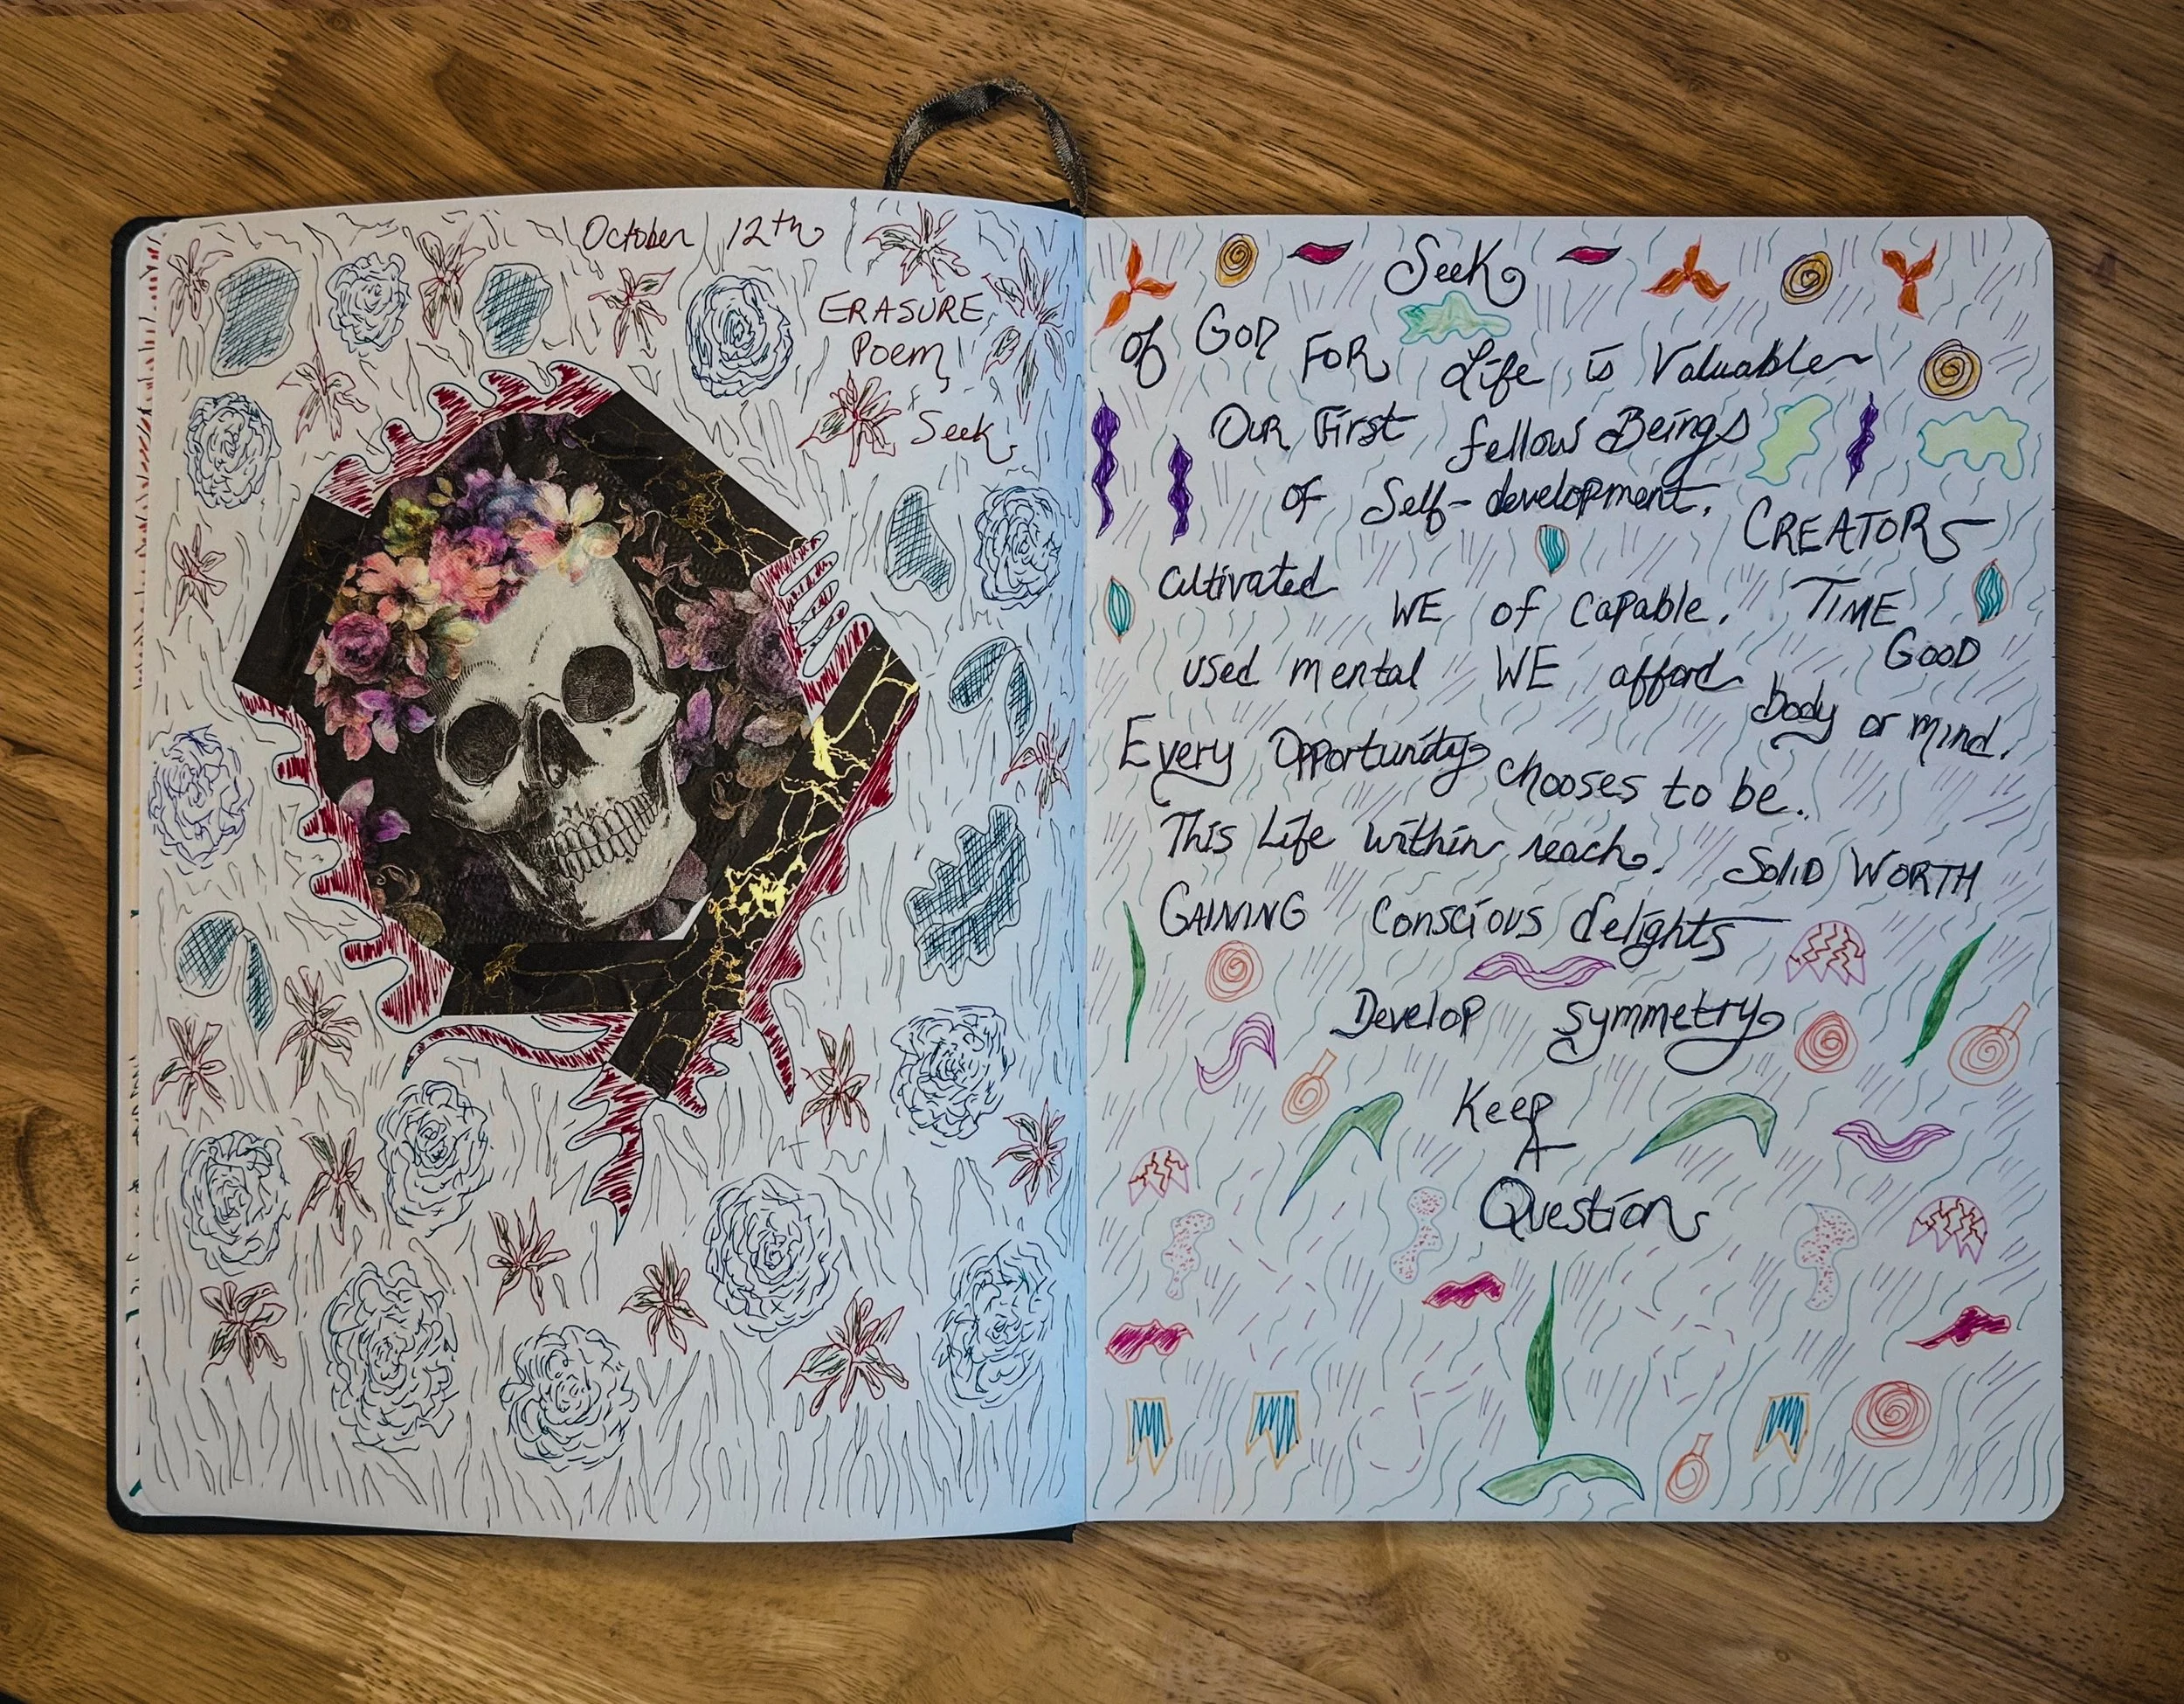 October 12th
ERASURE
Poem,
Seek
Seek
of GOD FOR Life is Valuable
OUR First fellow Beings
of Self-development.
CREATORS
Cultivated WE of capable. TIME
used mental WE afford GOOD
body or mind.
Every Opportunity chooses to be.
This Life within reach. SOLID WORTH
GAINING Conscious delights
Develop symmetry
Keep
A
Question